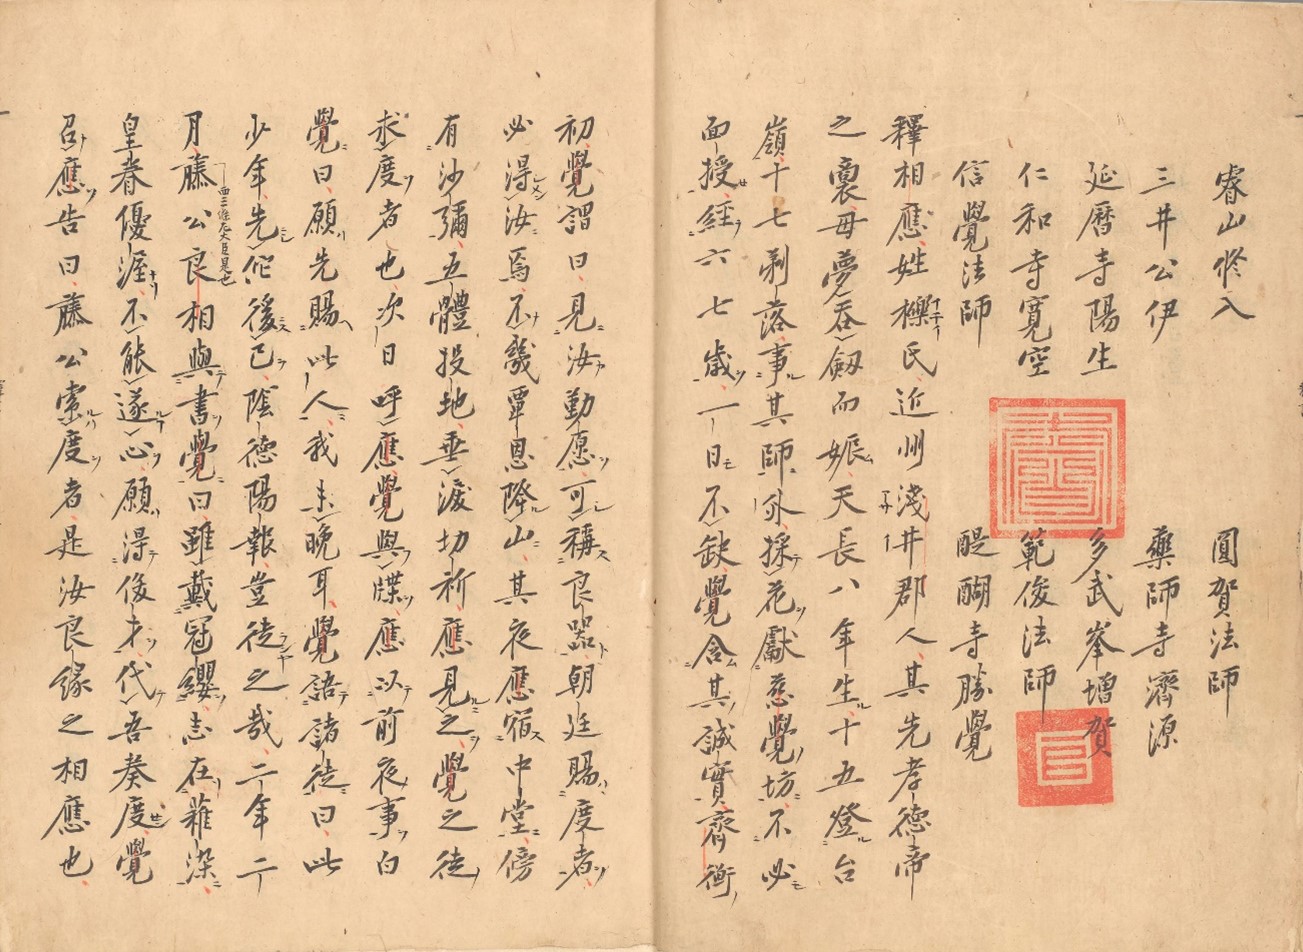 睿山修入　圓賀法師
三井公伊　藥師寺濟源
延曆寺陽生　多武峯增賀
仁和寺寬空　範俊法師
信覺法師　醍醐寺勝覺
釋相應姓櫟氏近州淺井郡人其先孝德帝
之裔母夢吞劔而娠天長八年生十五登台
嶺十七剃落事其師外採花獻慈覺坊不必
面授經六七歲一日不缺覺含其誠實齊衡
初覺謂曰見汝勤愿可稱良器朝廷賜度者
必得汝焉不幾覃恩降山其夜應宿中堂傍
有沙彌五體投地垂淚切祈應見之覺之徒
求度者也次日呼應覺與牒應以前夜事白
覺曰願先賜此人我未晚耳覺語諸徒曰此
少年先佗後已陰德陽報豈徒之哉二年二
月藤公良相與書覺曰雖戴冠纓志在薙染
西三條右大臣是也
皇眷優渥不能遂心願得俊才代吾奏度覺
召應告曰藤公索度者是汝良緣之相應也